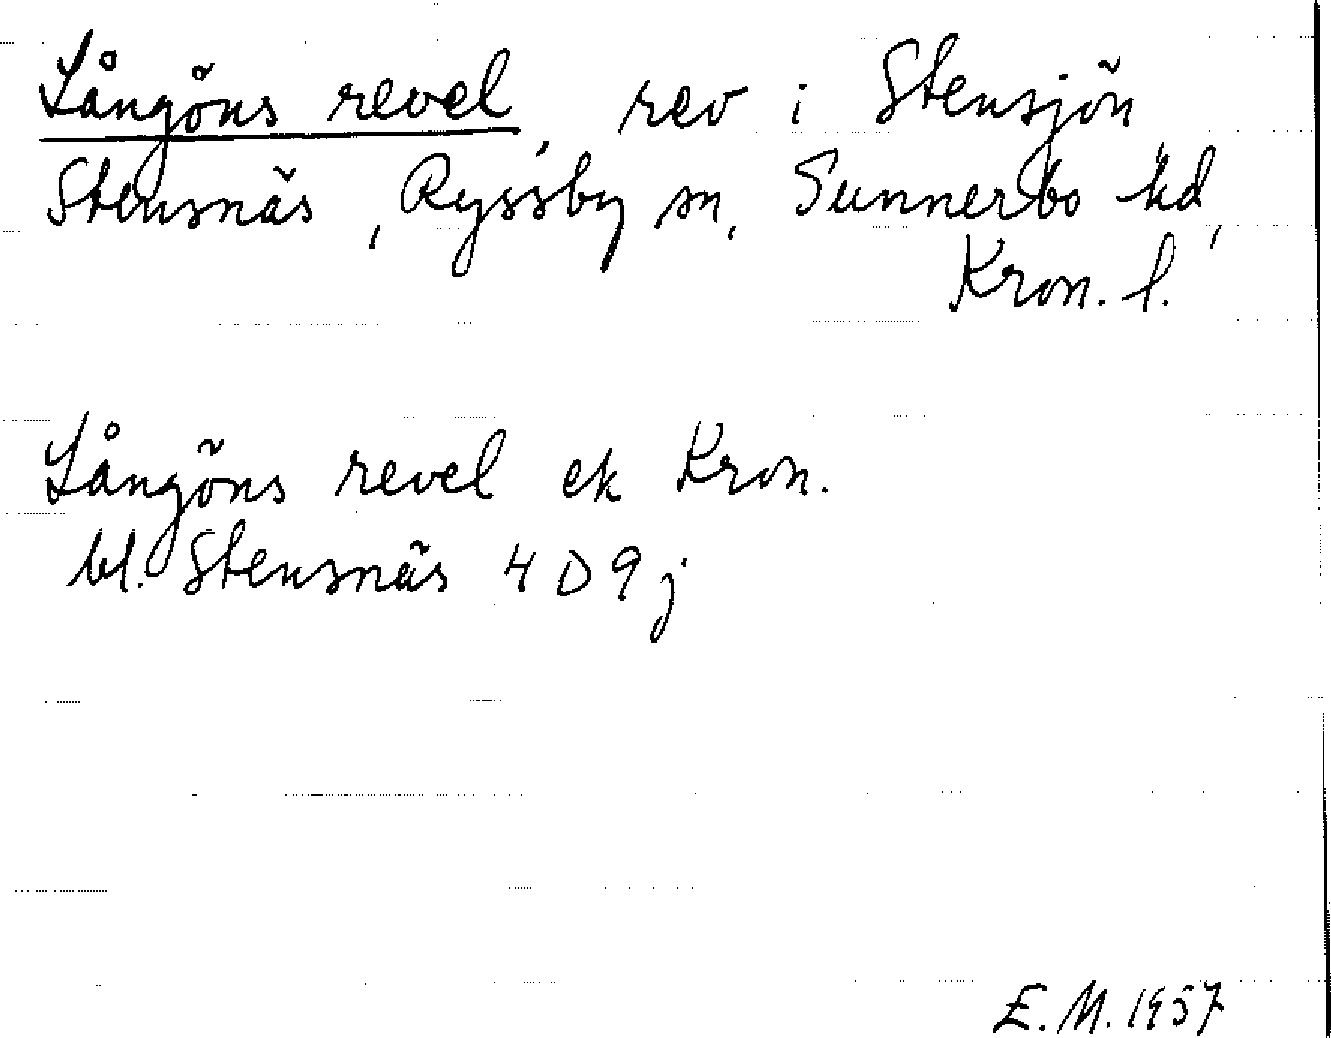 Långöns revel, rev i Stensjön,
Stensnäs, Ryssby sn, Sunnerbo hd,
Kron. l.
Långöns revel ek Kron.
bl. Stensnäs 4 D 9 j
E. M. 1957